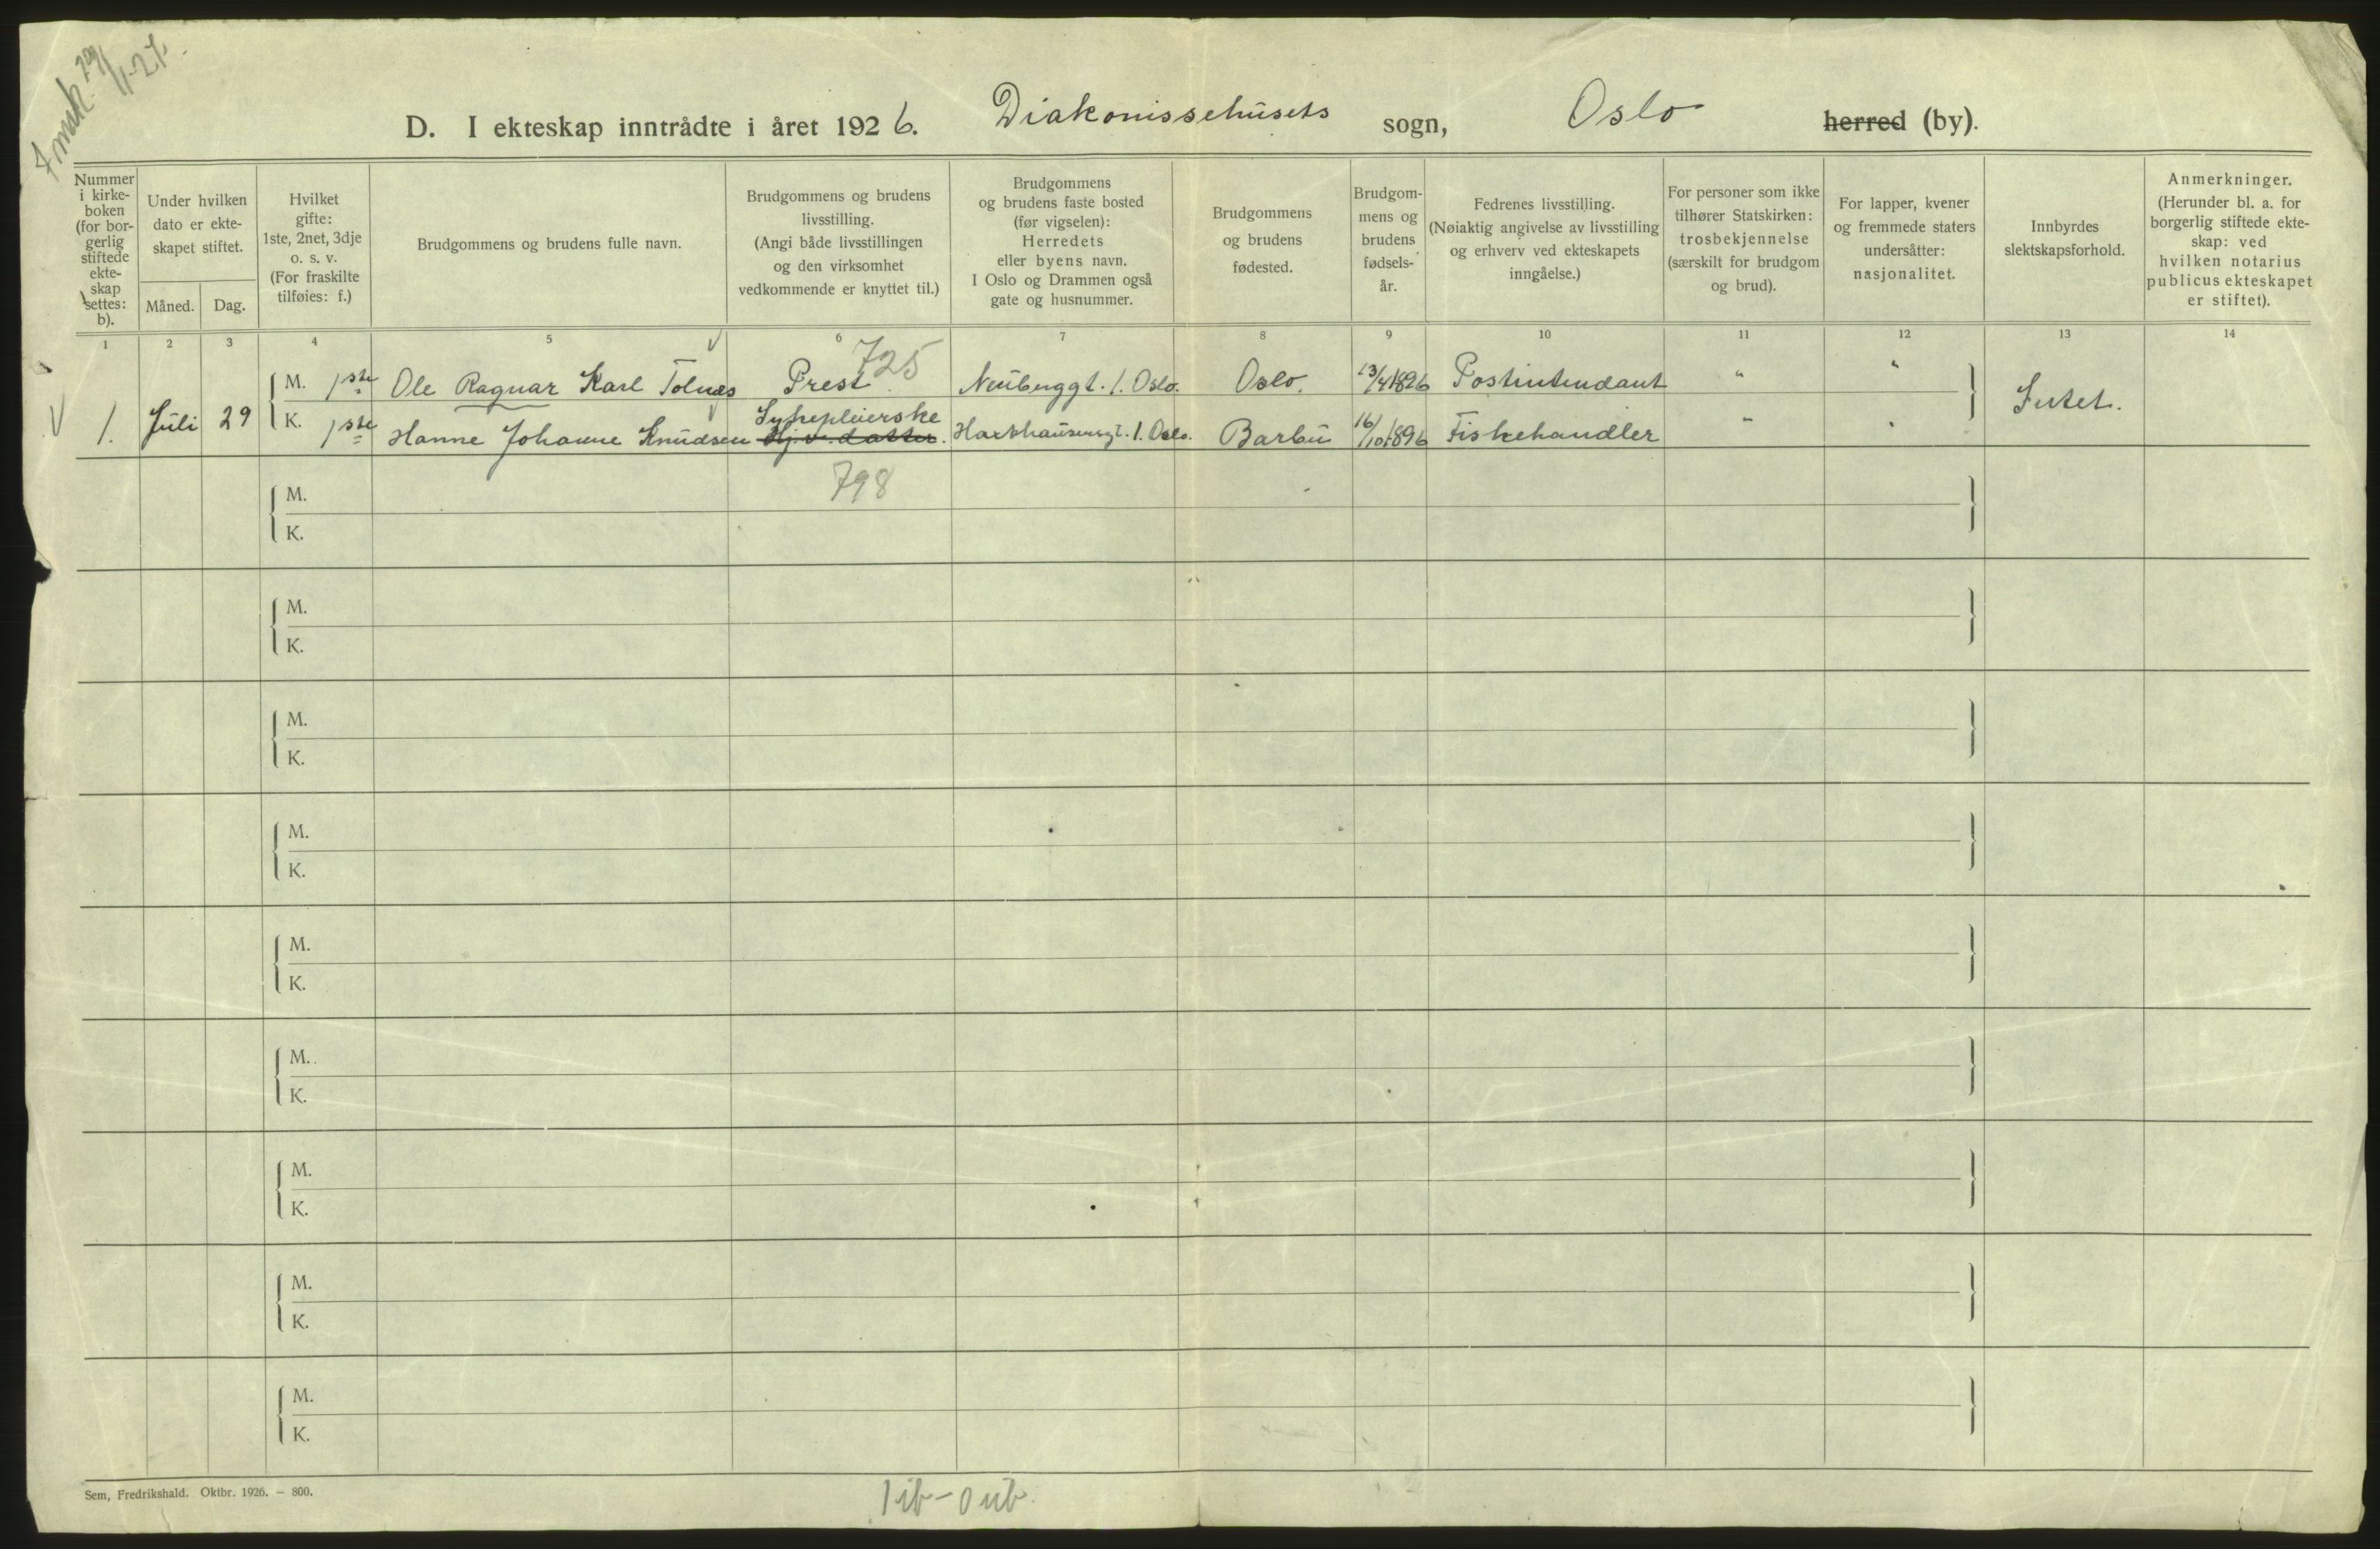 29/1-27.
D. I ekteskap inntrådte i året 1926. Diakonissehusets sogn, Oslo herred (by).
Nummer
i kirke-
boken
(for bor-
gerlig
stiftede
ekte-
skap
settes:
b).
Under hvilken
dato er ekte-
skapet stiftet.
Måned. Dag.
Hvilket
gifte:
1ste, 2net, 3dje
o. s. v.
(For fraskilte
tilføies: f.)
Brudgommens og brudens fulle navn.
Brudgommens og brudens
livsstilling.
(Angi både livsstillingen
og den virksomhet
vedkommende er knyttet til.)
Brudgommens
og brudens faste bosted
(før vigselen):
Herredets
eller byens navn.
I Oslo og Drammen også
gate og husnummer.
Brudgommens
og brudens
fødested.
Brudgom-
mens og
brudens
fødsels-
år.
Fedrenes livsstilling.
(Nøiaktig angivelse av livsstilling
og erhverv ved ekteskapets
inngåelse.)
For personer som ikke
tilhører Statskirken:
trosbekjennelse
(særskilt for brudgom
og brud).
For lapper, kvener
og fremmede staters
undersåtter:
nasjonalitet.
Innbyrdes
slektskapsforhold.
Anmerkninger.
(Herunder bl. a. for
borgerlig stiftede ekte-
skap: ved
hvilken notarius
publicus ekteskapet
er stiftet).
1 2 3 4 5 6 7 8 9 10 11 12 13 14
725
M. 1ste Ole Ragnar Karl Tolnæs Prest Neuberggt. 1. Oslo. Oslo. 13/4 1896 Postintendant " "
Sykepleierske
1. Juli 29 K. 1ste Hanne Johanne Knudsen Hj.v. datter. Haxthausensgt. 1. Oslo. Barbu 16/10 1896 Fiskehandler " " Intet.
798
M.
K.
M.
K.
M.
K.
M.
K.
M.
K.
M.
K.
M.
K.
M.
K.
M.
K.
Sem, Fredrikshald. Oktbr. 1926. — 800.
1 ib - 0 ub.